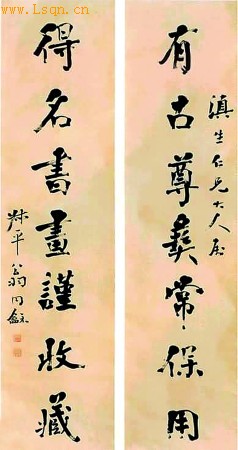 www.Lsqn.cn
滇生仁兄大人屬
有古尊彝常保用
得名書畫謹收藏
叔平翁同龢